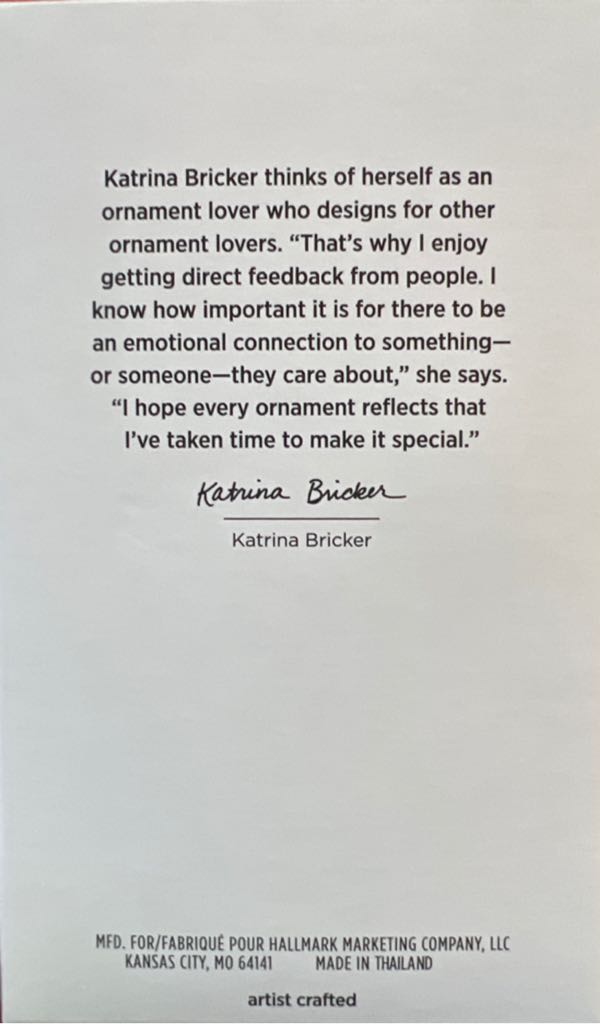 Katrina Bricker thinks of herself as an
ornament lover who designs for other
ornament lovers. “That’s why I enjoy
getting direct feedback from people. I
know how important it is for there to be
an emotional connection to something—
or someone—they care about,” she says.
“I hope every ornament reflects that
I’ve taken time to make it special.”
Katrina Bricker
Katrina Bricker
MFD. FOR/FABRIQUÉ POUR HALLMARK MARKETING COMPANY, LLC
KANSAS CITY, MO 64141 MADE IN THAILAND
artist crafted